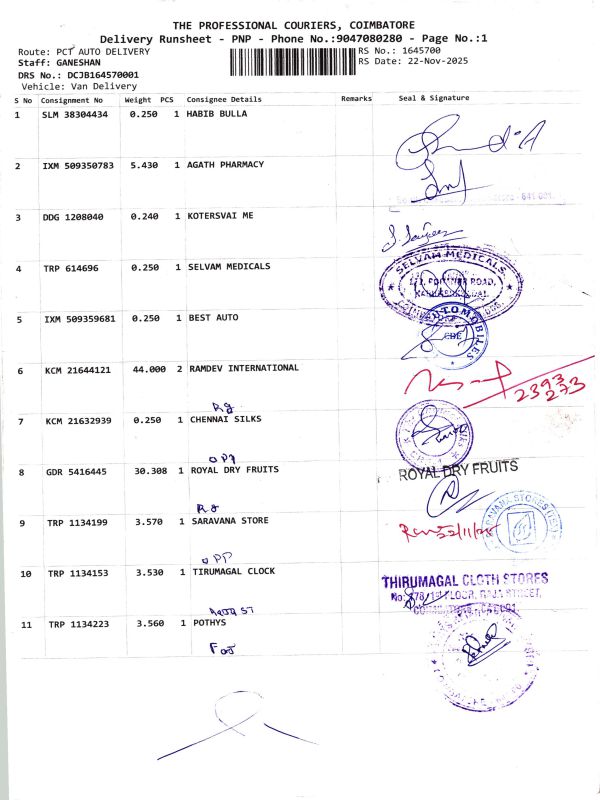 THE PROFESSIONAL COURIERS, COIMBATORE
Delivery Runsheet - PNP - Phone No.:9047080280 - Page No.:1
Route: PCT AUTO DELIVERY RS No.: 1645700
Staff: GANESHAN RS Date: 22-Nov-2025
DRS No.: DCJB164570001
Vehicle: Van Delivery
S No Consignment No Weight PCS Consignee Details Remarks Seal & Signature
1 SLM 38304434 0.250 1 HABIB BULLA
2 IXM 509350783 5.430 1 AGATH PHARMACY
3 DDG 1208040 0.240 1 KOTERSVAI ME
4 TRP 614696 0.250 1 SELVAM MEDICALS
SELVAM MEDICALS
5 IXM 509359681 0.250 1 BEST AUTO
CBE
6 KCM 21644121 44.000 2 RAMDEV INTERNATIONAL
2393
273
Rg
7 KCM 21632939 0.250 1 CHENNAI SILKS
OPP
8 GDR 5416445 30.308 1 ROYAL DRY FRUITS
ROYAL DRY FRUITS
Rg
9 TRP 1134199 3.570 1 SARAVANA STORE
22/11/25
OPP
10 TRP 1134153 3.530 1 TIRUMAGAL CLOCK
THIRUMAGAL CLOTH STORES
No: 78/1st FLOOR, RAJA STREET,
11 TRP 1134223 3.560 1 POTHYS